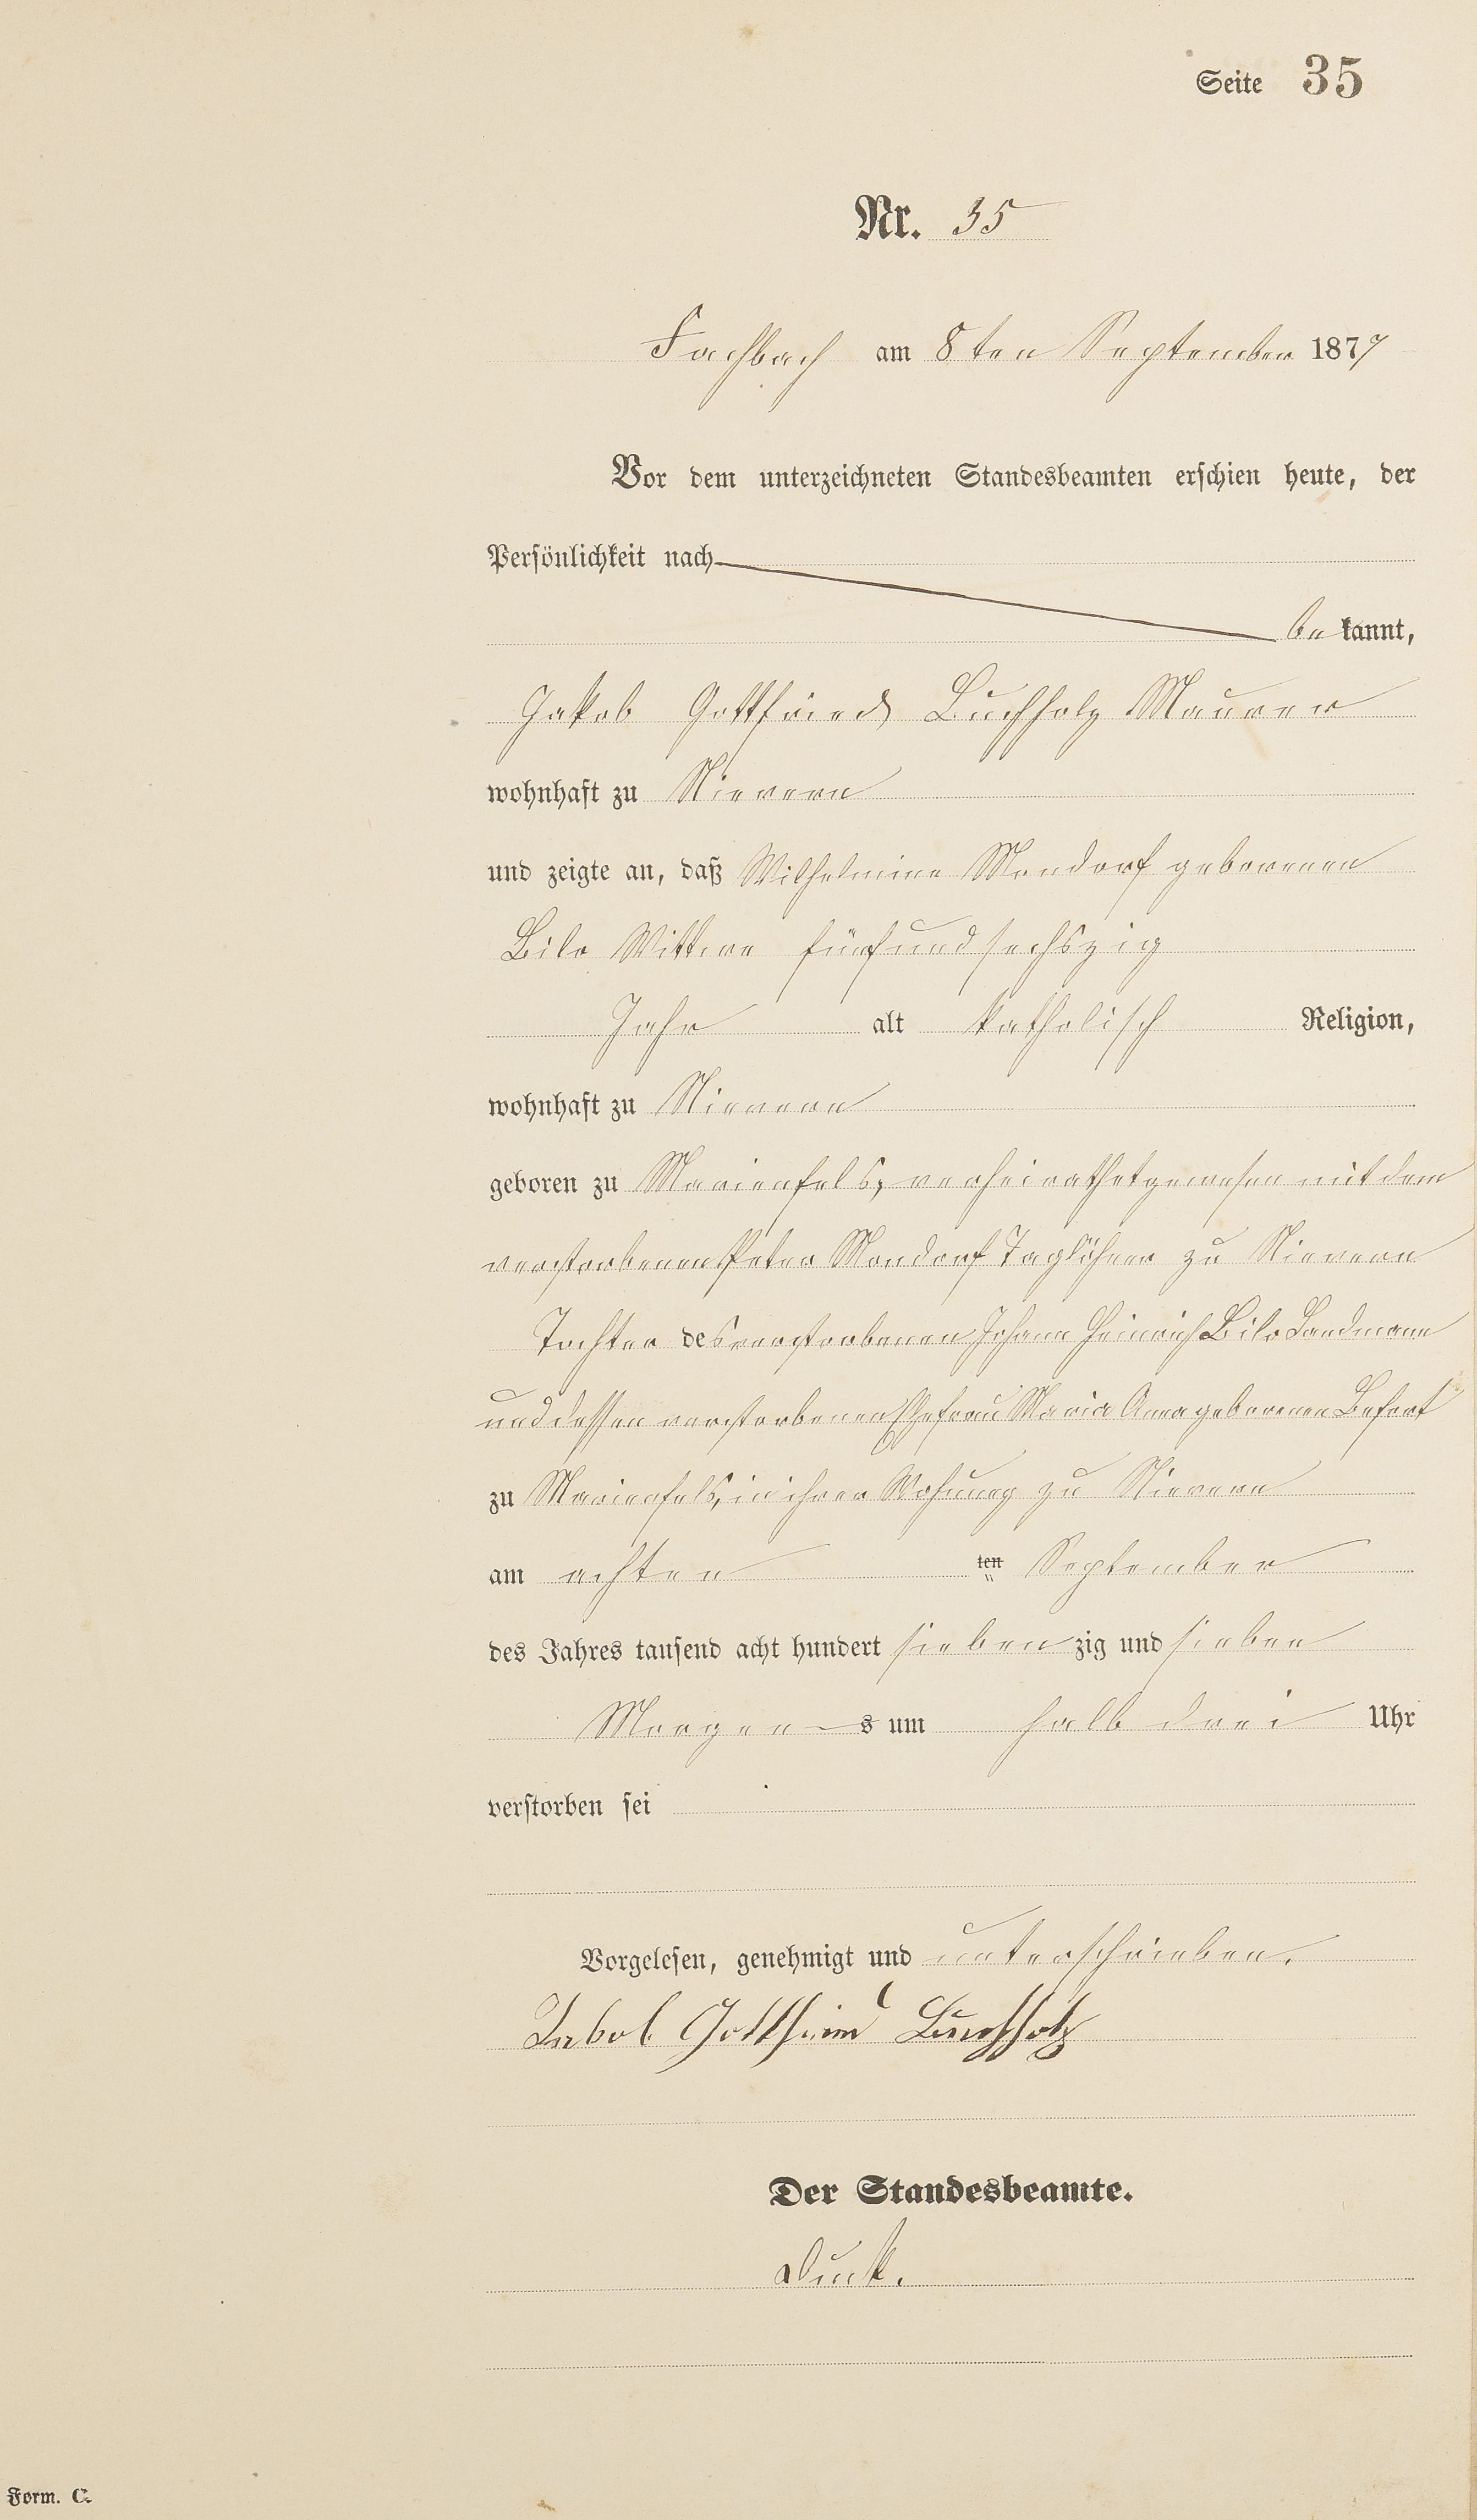 Seite 35
Nr. 35
Fachbach am 8ten September 1877
Vor dem unterzeichneten Standesbeamten erschien heute, der
Persönlichkeit nach
be kannt,
Jakob Gottfried Buchholz Maurer
wohnhaft zu Nievern
und zeigte an, daß Wilhelmine Mondorf geborenen
Bilo Wittwe fünfundsechszig
Jahr alt katholisch Religion,
wohnhaft zu Nievern
geboren zu Marienfels, verheirathet gewesen mit dem
verstorbenen Peter Mondorf Taglöhner zu Nievern
Tochter des verstorbenen Johann Heinrich Bilo Landmann
und dessen verstorbenen Ehefrau Maria Anna geborenen Befort
zu Marienfels, in ihrer Wohnung zu Nievern
am achten ten September
des Jahres tausend acht hundert sieben zig und sieben
Morgen s um halb drei Uhr
verstorben sei
Vorgelesen, genehmigt und unterschrieben.
Jakob Gottfried Buchholz
Der Standesbeamte.
Form. C.